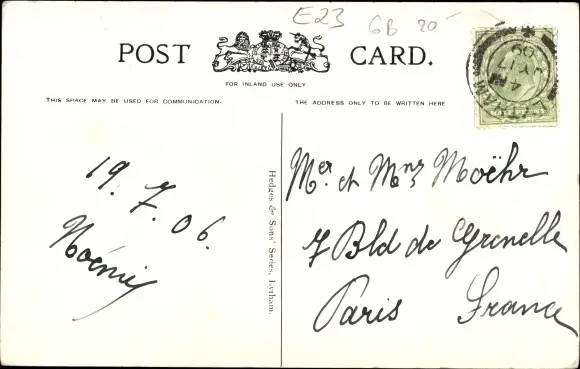 E23 GB 20
POST CARD.
FOR INLAND USE ONLY
THIS SPACE MAY BE USED FOR COMMUNICATION.
THE ADDRESS ONLY TO BE WRITTEN HERE
19.7.06.
Noémie
Hedges & Sons' Series, Lytham.
Mer. et Mnr Moëhr
7 Bld de Grenelle
Paris France